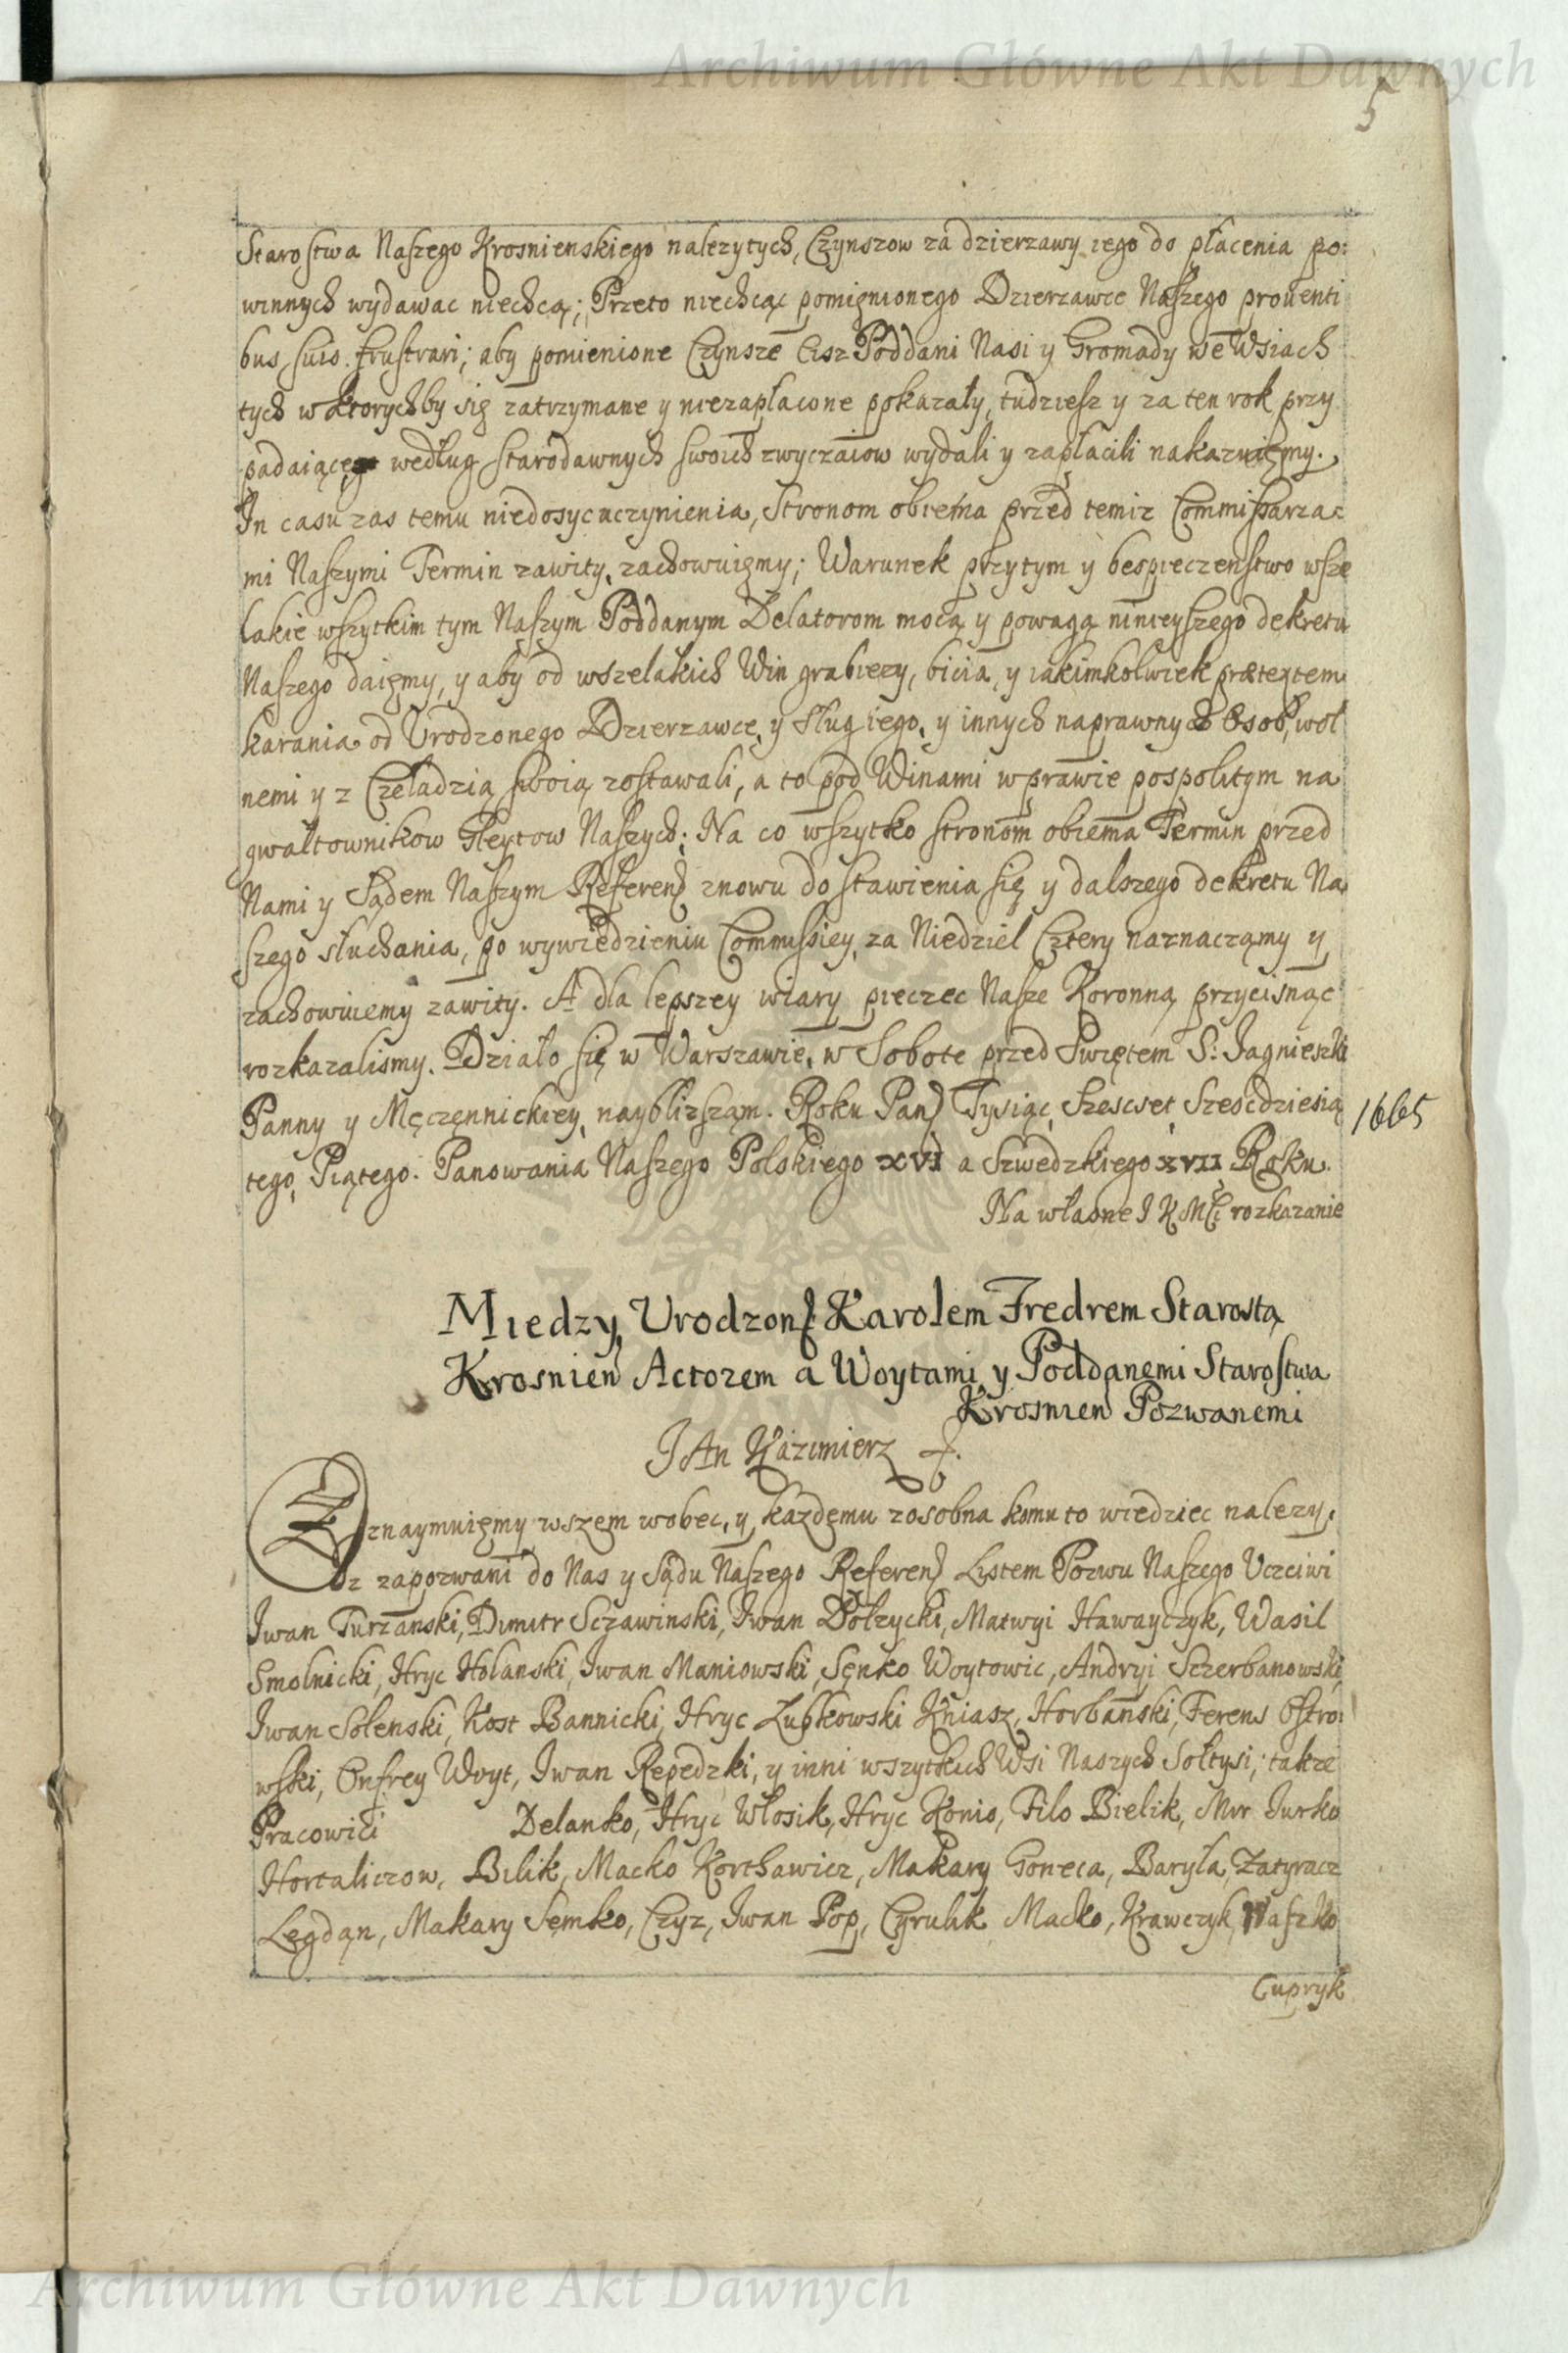 Archiwum Główne Akt Dawnych
5
Starostwa Naszego Krosnienskiego nalezytych, Czynszow za dzierzawy iego do płacenia po:
winnych wydawac niechcą; Przeto niechcąc pomięnionego Dzierzawce Naszego proventi
bus suis frustrari; aby pomienione Czynsze Cisz Poddani Nasi y Gromady we Wsiach
tych w ktorychby się zatrzymane y niezapłacone pokazały, tudziesz y za ten rok przy
padaiące według starodawnych swoich zwyczaiow wydali y zapłacili nakazuięmy.
In casu zas temu niedosycuczynienia, Stronom obiema przed temiz Commissarza:
mi Naszymi Termin zawity zachowuięmy; Warunek przytym y bespieczenstwo wsze
lakie wszytkim tym Naszym Poddanym Delatorom mocą y powagą ninieyszego dekretu
Naszego daięmy, y aby od wszelakich Win grabiezy, bicia, y iakimkolwiek prætextem
karania od Urodzonego Dzierzawce, y sług iego, y innych naprawnych Osob, wol
nemi y z Czeladzią swoią zostawali, a to pod Winami w prawie pospolitym na
gwałtownikow Gleytow Naszych; Na co wszytko stronom obiema Termin przed
Nami y Sądem Naszym Referend znowu do stawienia się y dalszego dekretu Na
szego słuchania, po wywiedzieniu Commissiey, za Niedziel Cztery naznaczamy y
zachowuiemy zawity. A dla lepszey wiary pieczec Nasze Koronną przycisnąc
rozkazalismy. Działo się w Warszawie, w Sobote przed Swiętem S: Jagnieszki
Panny y Męczęnnickiey, nayblizsząm. Roku Pan Tysiąc Szescset Szescdziesią
1665
tego, Piątego. Panowania Naszego Polskiego XVI a Szwedzkiego XVII Roku.
Na własne J K Mci rozkazanie
Miedzy Urodzon Karolem Fredrem Starostą
Krosnien Actorem a Woytami y Poddanemi Starostwa
Krosnien Pozwanemi
JAn Kazimierz
Oznaymuięmy wszem wobec, y kazdęmu zosobna komu to wiedziec nalezy.
Iz zapozwani do Nas y Sądu Naszego Referend Lystem Pozwu Naszego Uczciwi
Iwan Turzanski, Dimitr Sczawinski, Iwan Dołzycki, Matwyi Hawayczyk, Wasil
Smolnicki, Hryc Holanski, Iwan Maniowski, Sęnko Woytowic, Andryi Sczerbanowski
Iwan Solenski, Kost Bannicki, Hryc Łupkowski Kniasz, Horbanski, Ferens Ostro:
wski, Onfrey Woyt, Iwan Repedzki, y inni wszytkich Wsi Naszych Sołtysi; takze
Pracowici Delanko, Hryc Włosik, Hryc Konio, Filo Bielik, Mir Jurko
Hortaliczow, Bilik, Macko Korthawicz, Makary Goneca, Baryła, Zatyracz
Lęgdąn, Makary Sęmko, Czyz, Iwan Pop, Cyrulik Macko, Krawczyk, Waszko
Cupryk
Archiwum Główne Akt Dawnych